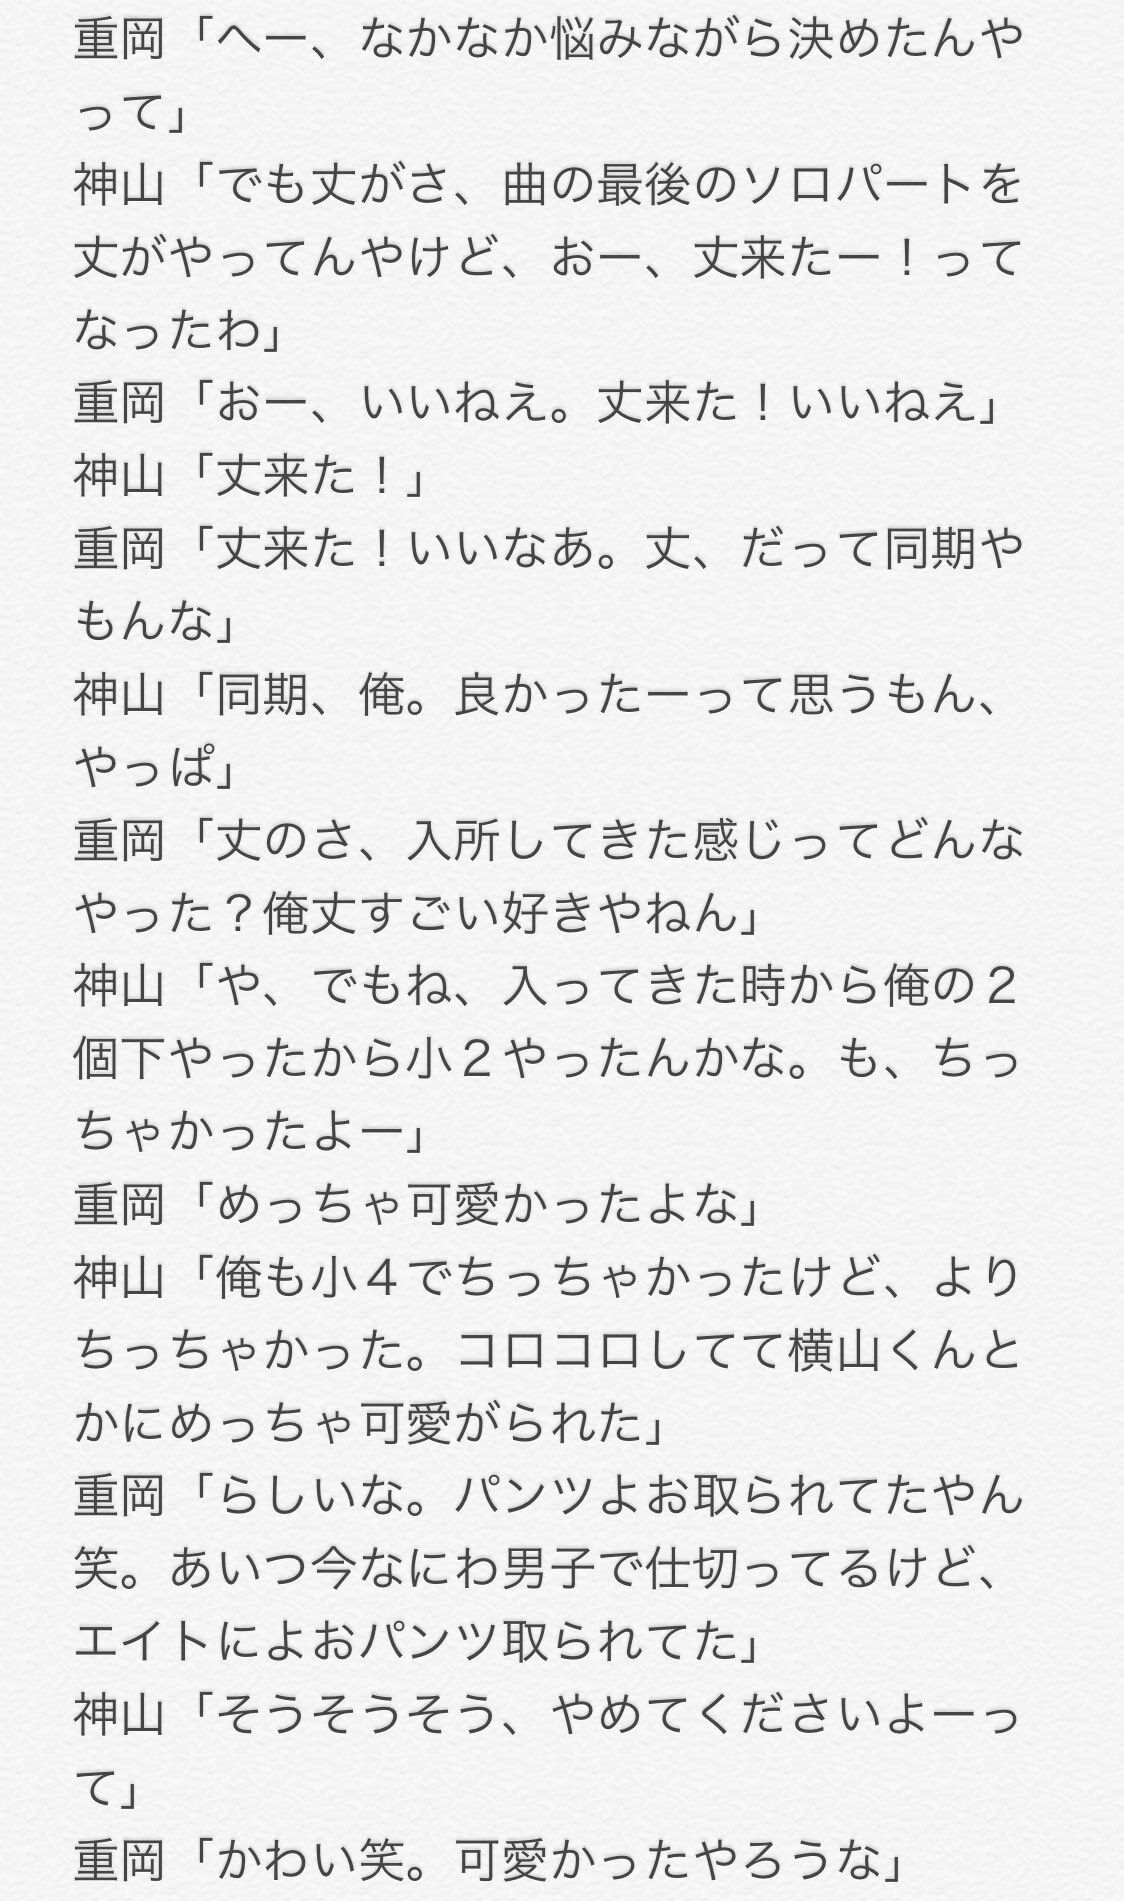 重岡「へー、なかなか悩みながら決めたんや
って」
神山「でも丈がさ、曲の最後のソロパートを
丈がやってんやけど、おー、丈来たー！って
なったわ」
重岡「おー、いいねえ。丈来た！いいねえ」
神山「丈来た！」
重岡「丈来た！いいなあ。丈、だって同期や
もんな」
神山「同期、俺。良かったーって思うもん、
やっぱ」
重岡「丈のさ、入所してきた感じってどんな
やった？俺丈すごい好きやねん」
神山「や、でもね、入ってきた時から俺の２
個下やったから小２やったんかな。も、ちっ
ちゃかったよー」
重岡「めっちゃ可愛かったよな」
神山「俺も小４でちっちゃかったけど、より
ちっちゃかった。コロコロしてて横山くんと
かにめっちゃ可愛がられた」
重岡「らしいな。パンツよお取られてたやん
笑。あいつ今なにわ男子で仕切ってるけど、
エイトによおパンツ取られてた」
神山「そうそうそう、やめてくださいよーっ
て」
重岡「かわい笑。可愛かったやろうな」